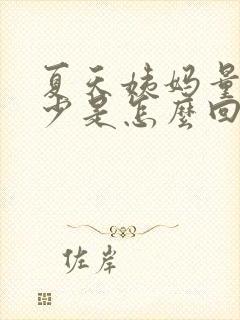 夏天姨妈量
少是怎麽回
佐岸